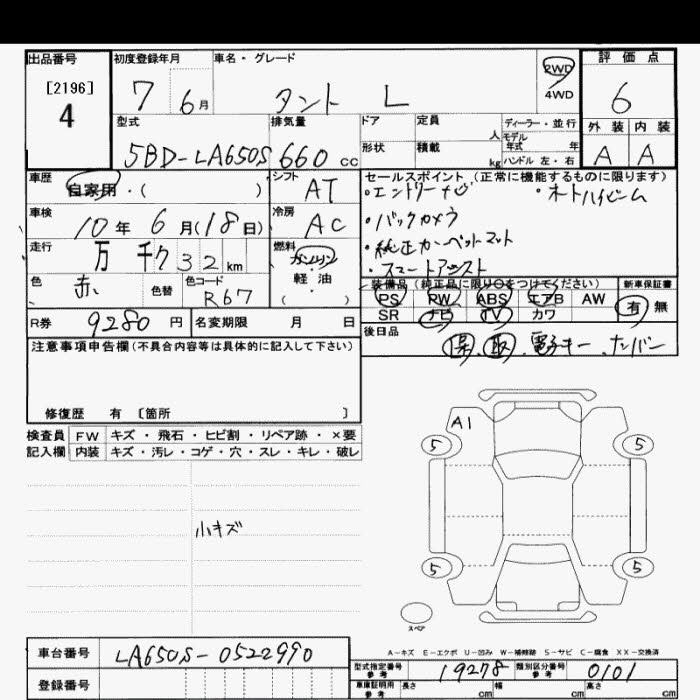 出品番号 初度登録年月 車名・グレード 2WD 評価点
[2196] 7 6月 タント L 4WD 6
4
型式 排気量 ドア 定員 人 ディーラー・並行 外装 内装
5BD-LA650S 660 cc 形状 積載 kg モデル年式 年 ハンドル 左・右 A A
車歴 自家用・( ) シフト AT セールスポイント(正常に機能するものに限ります)
・エントリーナビ ・オートハイビーム
車検 10年 6月(18日) 冷房 AC ・バックカメラ
走行 万 千7 3 2 km 燃料 ガソリン・軽油 ( ) ・純正カーペットマット
・スマートアシスト
色 赤 色替 色コード R67 装備品(純正品に限り○をつけてください) 新車保証書
PS PW ABS エアB AW 有 無
R券 9280円 名変期限 月 日 SR ナビ TV カワ
注意事項申告欄(不具合内容等は具体的に記入して下さい) 後日品 保、取、電子キー、ナンバー
修復歴 有 〔箇所 〕
検査員 FW キズ・飛石・ヒビ割・リペア跡・×要
記入欄 内装 キズ・汚レ・コゲ・穴・スレ・キレ・破レ
A1
5 5
小キズ
5 5
スペア
A-キズ E-エクボ U-凹み W-補修跡 S-サビ C-腐食 XX-交換済
車台番号 LA650S-0522990 型式指定番号 参考 19278 類別区分番号 参考 0101
登録番号 車庫証明用 参考 長さ cm 幅 cm 高さ cm